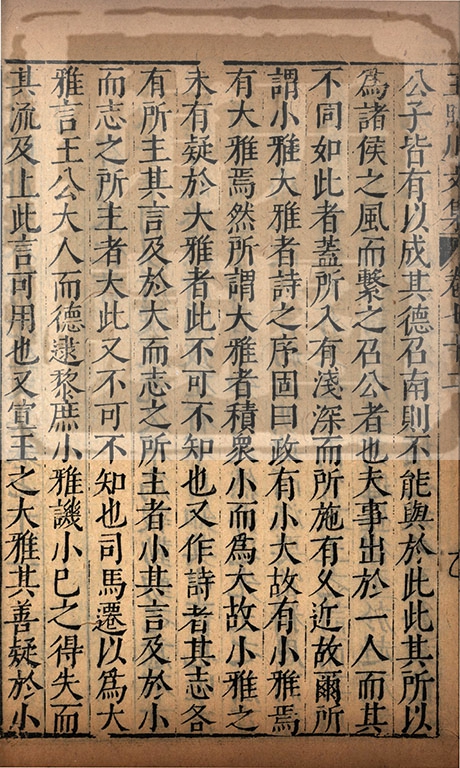 公子皆有以成其德召南則不能與於此此其所以
為諸侯之風而繫之召公者也夫事出於一人而其
不同如此者蓋所入有淺深而所施有久近故爾所
謂小雅大雅者詩之序固曰政有小大故有小雅焉
有大雅焉然所謂大雅者積衆小而為大故小雅之
末有疑於大雅者此不可不知也又作詩者其志各
有所主其言及於大而志之所主者小其言及於小
而志之所主者大此又不可不知也司馬遷以為大
雅言王公大人而德逮黎庶小雅譏小已之得失而
其流及上此言可用也又宣王之大雅其善疑於小